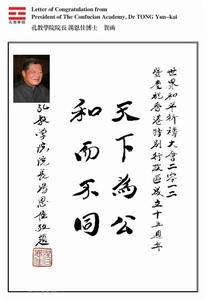 Letter of Congratulation from
President of The Confucian Academy, Dr TONG Yun-kai
孔教學院院長湯恩佳博士 賀函
世界和平祈禱大會二零一二
暨慶祝香港特別行政區成立十五週年
天下為公
和而不同
孔教學院院長湯恩佳敬題